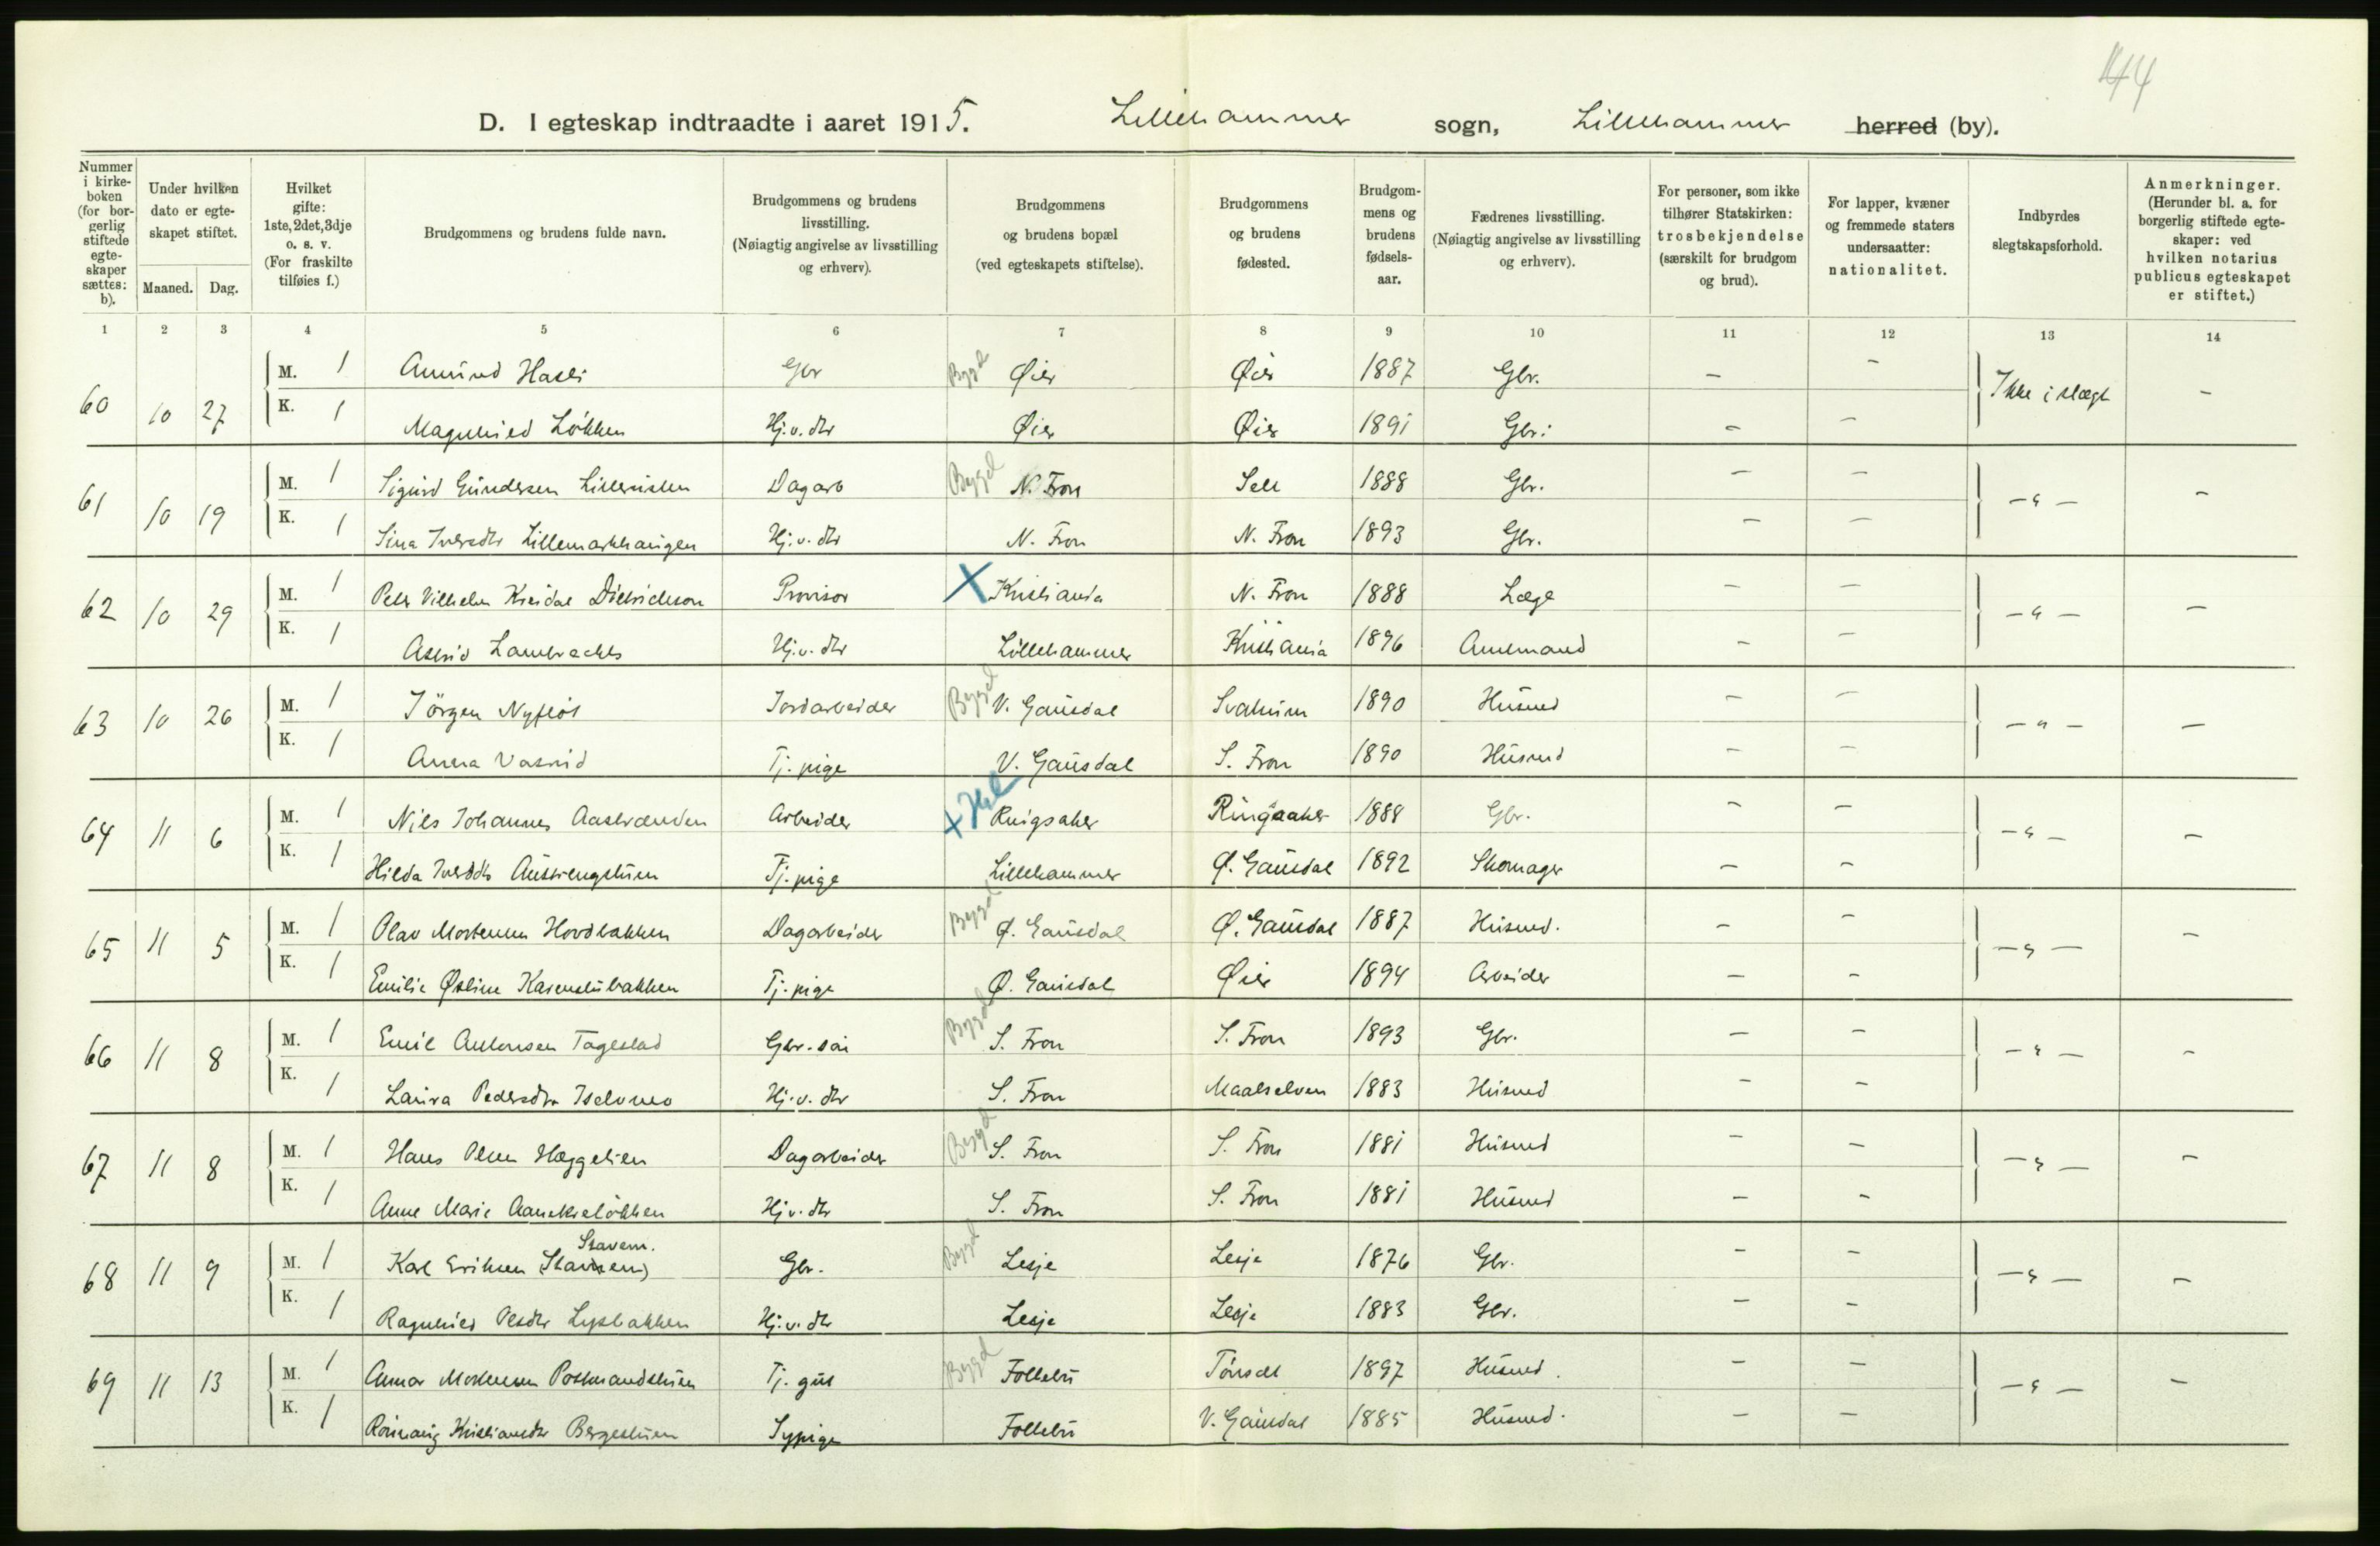 44
D. I egteskap indtraadte i aaret 1915. Lillehammer sogn, Lillehammer herred (by).
Nummer i kirke-boken (for bor-gerlig stiftede egte-skaper sættes: b).
Under hvilken dato er egte-skapet stiftet.
Maaned. Dag.
Hvilket gifte: 1ste, 2det, 3dje o. s. v. (For fraskilte tilføies f.)
Brudgommens og brudens fulde navn.
Brudgommens og brudens livsstilling. (Nøiagtig angivelse av livsstilling og erhverv).
Brudgommens og brudens bopæl (ved egteskapets stiftelse).
Brudgommens og brudens fødested.
Brudgom-mens og brudens fødsels-aar.
Fædrenes livsstilling. (Nøiagtig angivelse av livsstilling og erhverv).
For personer, som ikke tilhører Statskirken: trosbekjendelse (særskilt for brudgom og brud).
For lapper, kvæner og fremmede staters undersaatter: nationalitet.
Indbyrdes slegtskapsforhold.
Anmerkninger. (Herunder bl. a. for borgerlig stiftede egte-skaper: ved hvilken notarius publicus egteskapet er stiftet.)
1 2 3 4 5 6 7 8 9 10 11 12 13 14
60 10 27 M. 1 Amund Hasli Gbr Bygd Øier Øier 1887 Gbr. — — Ikke i slægt —
K. 1 Magnhild Løkken Hj.v.dtr Øier Øier 1891 Gbr. — —
61 10 19 M. 1 Sigurd Gundersen Dagarb Bygd N. Fron Sell 1888 Gbr. — — — " — —
K. 1 Sina Iversdtr Lillemarkhaugen Hj.v.dtr N. Fron N. Fron 1893 Gbr. — —
62 10 29 M. 1 Peter Vilhelm Dietrichson Provisor X Kristiania N. Fron 1888 Læge — — — " — —
K. 1 Astrid Lambrechts Hj.v.dtr Lillehammer Kristiania 1896 Amtmand — —
63 10 26 M. 1 Jörgen Nyfløt Jordarbeider Bygd V. Gausdal Svatsum 1890 Husmd — — — " — —
K. 1 Anna Vasrud Tj. pige V. Gausdal S. Fron 1890 Husmd — —
64 11 6 M. 1 Nils Johannes Aastrænden Arbeider X Hel Ringsaker Ringsaker 1888 Gbr. — — — " — —
K. 1 Hilda Iversdtr Tj. pige Lillehammer Ø. Gausdal 1892 Skomager — —
65 11 5 M. 1 Olav Mortensen Hovdbakken Dagarbeider Bygd Ø. Gausdal Ø. Gausdal 1887 Husmd. — — — " — —
K. 1 Emilie Østine Tj. pige Ø. Gausdal Øier 1894 Arbeider — —
66 11 8 M. 1 Emil Antonsen Tagestad Gbr. Bygd S. Fron S. Fron 1893 Gbr. — — — " — —
K. 1 Laura Pedersdtr Hj.v.dtr S. Fron Maalselven 1883 Husmd — —
67 11 8 M. 1 Hans Olsen Hæggelien Dagarbeider Bygd S. Fron S. Fron 1881 Husmd — — — " — —
K. 1 Anne Marie Hj.v.dtr S. Fron S. Fron 1881 Husmd — —
Stavem.
68 11 9 M. 1 Karl Eriksen Gbr. Bygd Lesje Lesje 1876 Gbr. — — — " — —
K. 1 Ragnhild Olsdtr Lysbakken Hj.v.dtr Lesje Lesje 1883 Gbr. — —
69 11 13 M. 1 Mortensen Tj. gut Bygd Follebu 1897 Husmd. — — — " — —
K. 1 Rønnaug Kristiansdtr Sypige Follebu V. Gausdal 1885 Husmd. — —